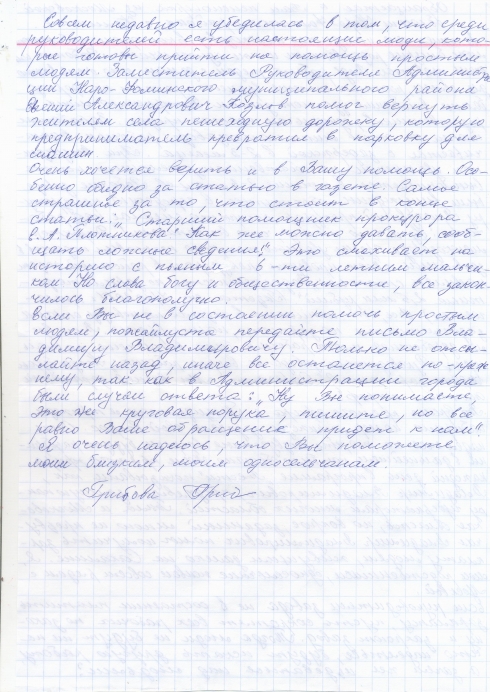 Совсем недавно я убедилась в том, что среди
руководителей есть настоящие люди, кото-
рые готовы прийти на помощь простым
людям. Заместитель Руководителя Администра
ции Наро-Фоминского муниципального района
Александрович Козлов помог вернуть
жителям села пешеходную дорожку, которую
предприниматель превратил в парковку для
машин
Очень хочется верить и в Вашу помощь. Осо-
бенно обидно за статью в газете. Самое
страшное за то, что стоит в конце
статьи: „Старший помощник прокурора
Е. А. Плотникова". Как же можно давать, сооб-
щать ложные сведения!" Это смахивает на
историю с пьяным 6-ти летним мальчи-
ком Но слава богу и общественности, все закон-
чилось благополучно.
Если Вы не в состоянии помочь простым
людям, пожалуйста передайте письмо Вла-
димиру Владимировичу. Только не отсы-
лайте назад, иначе все останется по-преж
нему, так как в Администрации города
были случаи ответа: „Ну Вы понимаете,
это же круговая порука, пишите, но все
равно Ваше обращение придет к нам".
Я очень надеюсь, что Вы поможете
моим близким, моим односельчанам.
Грибова